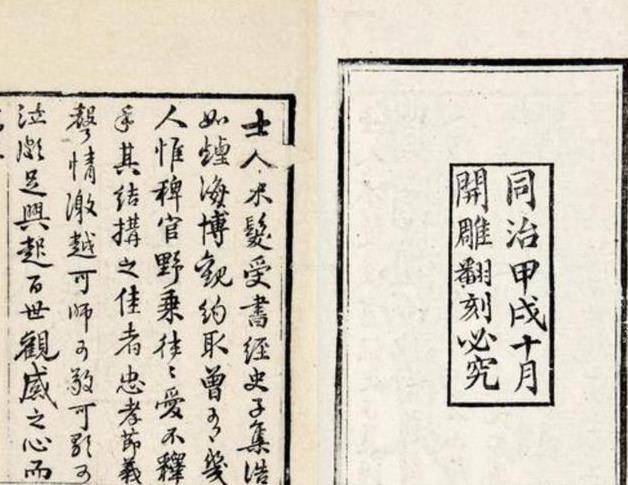 同治甲戌十月
開雕翻刻必究
士人束髮受書經史子集浩
如煙海博觀約取曾有幾
人惟稗官野乘往〻愛不釋
手其結搆之佳者忠孝節義
聲情激越可師可敬可歌可
泣頗足興起百世觀感之心而